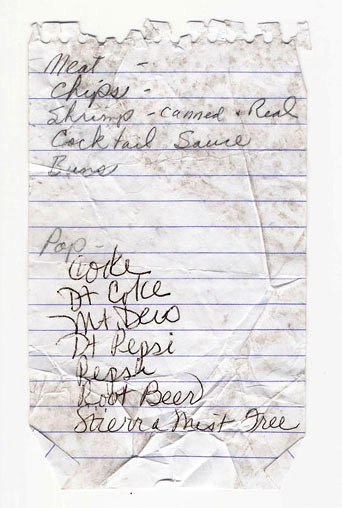 Meat -
Chips -
Shrimp - canned + Real
Cocktail Sauce
Buns
Pop -
Coke
Dt Coke
Mt Dew
Dt Pepsi
Pepsi
Root Beer
Stierra Mist Free